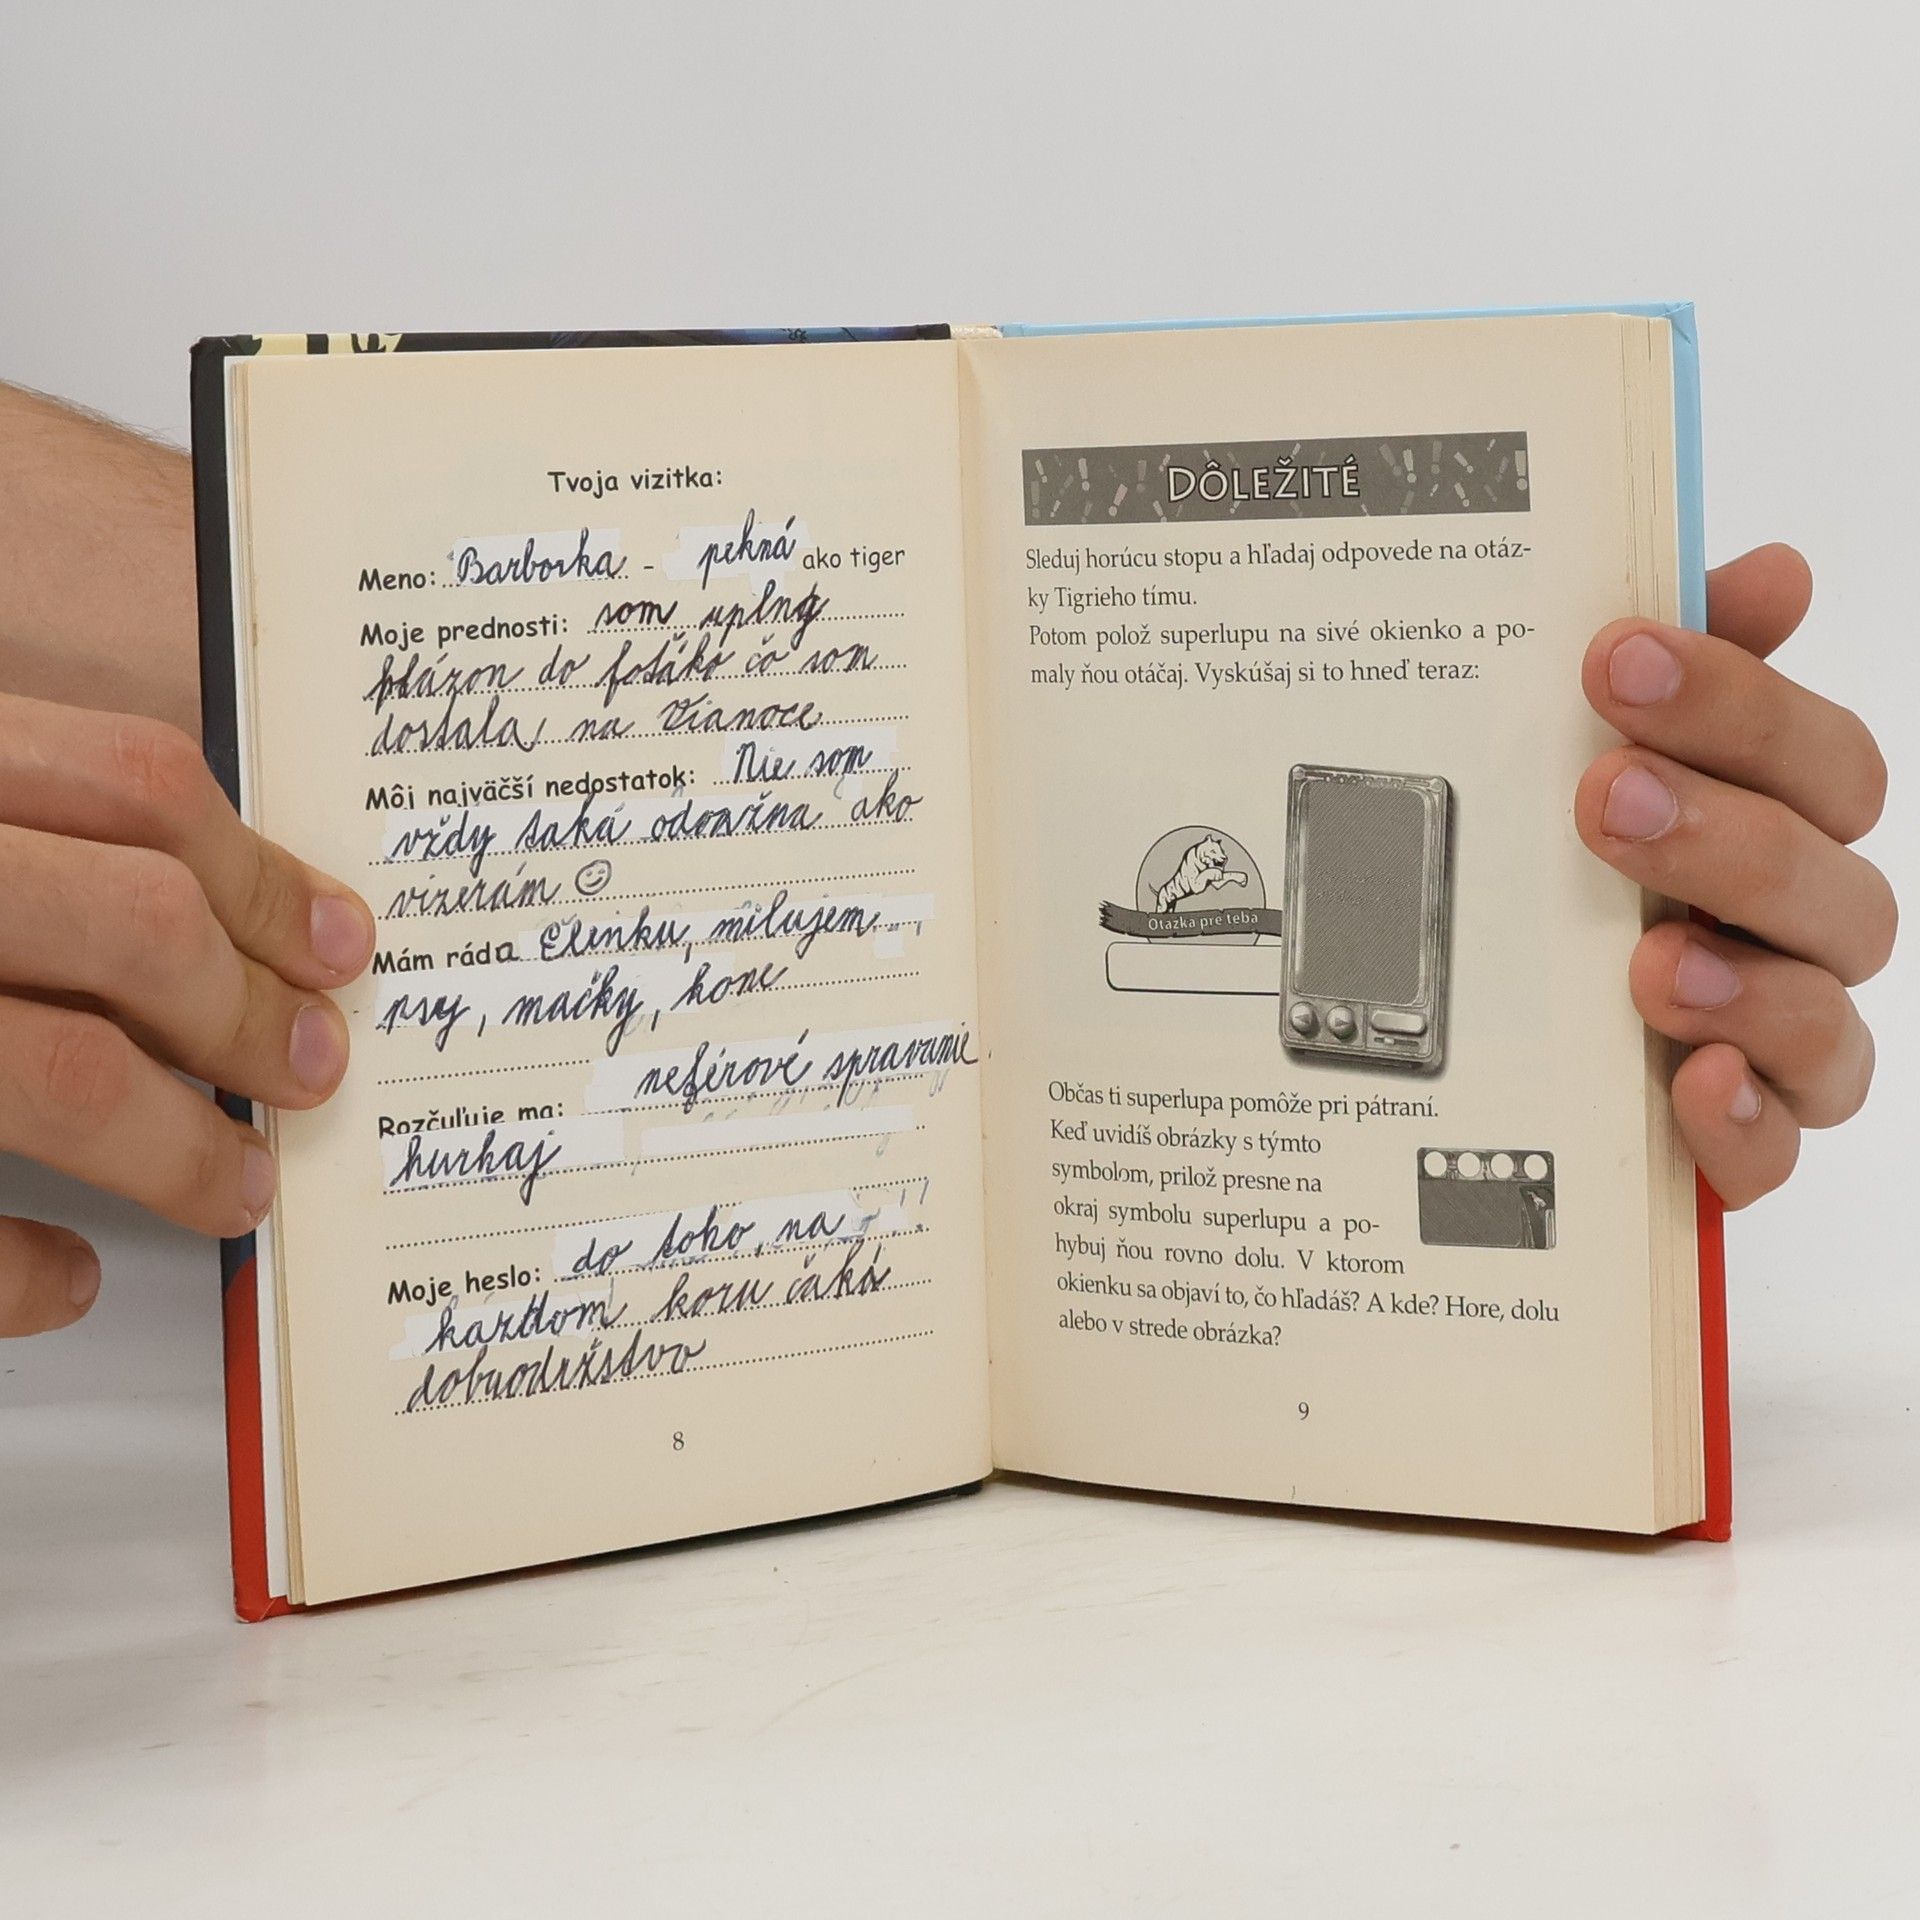 Tvoja vizitka:
Meno: Barborka - pekná ako tiger
Moje prednosti: som uplný
blázon do foťáku čo som
dostala na Vianoce
Môj najväčší nedostatok: Nie som
vždy taká odvažna ako
vizerám ☺
Mám ráda Elinku, milujem
psy, mačky, kone
neférové spravanie
Rozčuľuje ma:
hurkaj
do toho, na
Moje heslo:
každom kozu čaká
dobrodržstvo
8
DÔLEŽITÉ
Sleduj horúcu stopu a hľadaj odpovede na otáz-
ky Tigrieho tímu.
Potom polož superlupu na sivé okienko a po-
maly ňou otáčaj. Vyskúšaj si to hneď teraz:
Otázka pre teba
Občas ti superlupa pomôže pri pátraní.
Keď uvidíš obrázky s týmto
symbolom, prilož presne na
okraj symbolu superlupu a po-
hybuj ňou rovno dolu. V ktorom
okienku sa objaví to, čo hľadáš? A kde? Hore, dolu
alebo v strede obrázka?
9